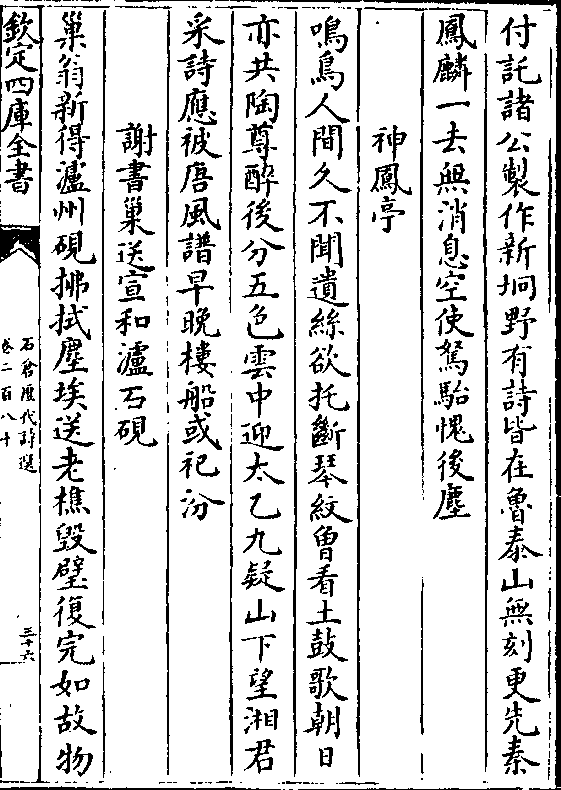 付託諸公製作新坰野有詩皆在魯泰山無刻更先秦
鳳麟一去無消息空使駑駘愧後塵
神鳳亭
鳴鳥人間久不聞遺絲欲托斷琴紋曾看土鼓歌朝日
亦共陶尊醉後分五色雲中迎太乙九疑山下望湘君
采詩應被唐風譜早晚樓船或祀汾
謝書巢送宣和瀘石硯
巢翁新得瀘州硯拂拭塵埃送老樵毀璧復完如故物
欽定四庫全書
石倉歷代詩選
卷二百八十
三十六